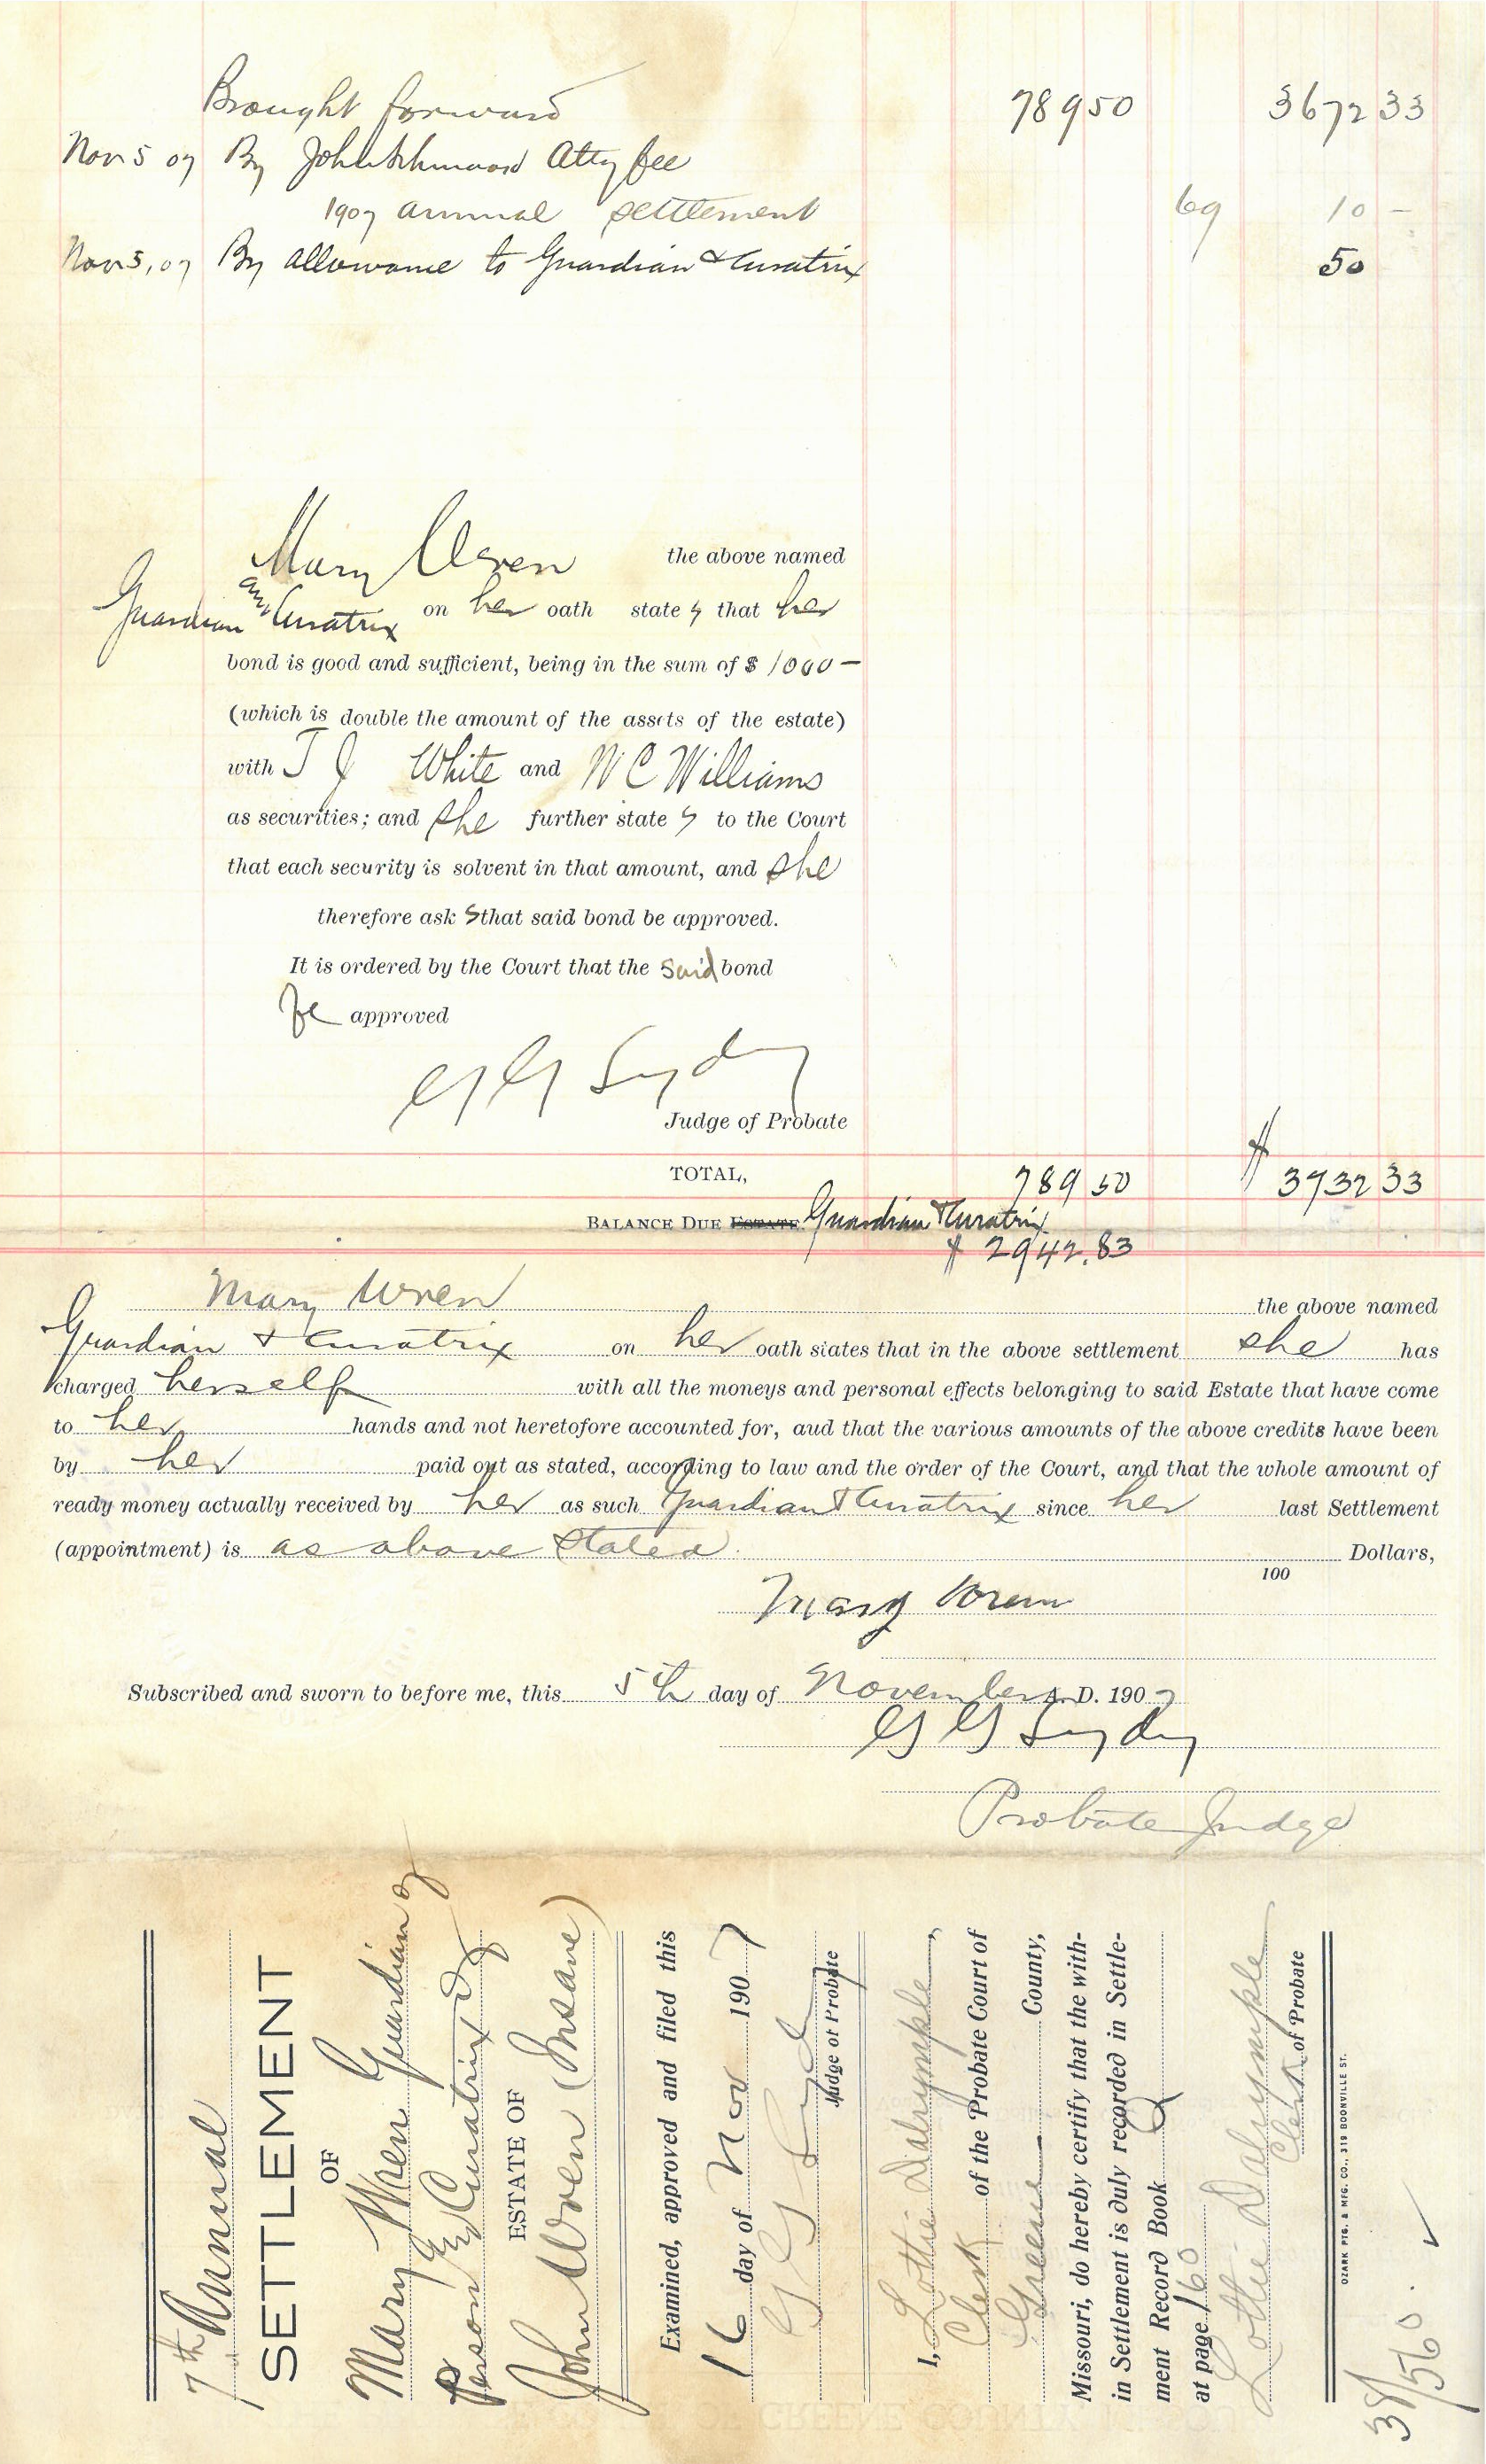 Brought forward 789 50 3672 33
Nov 5 07 By John Schmook Atty fee
1907 annual settlement 69 10 -
Nov 5, 07 By allowance to Guardian & Curatrix 50
Mary Wren the above named
Guardian and Curatrix on her oath state s that her
bond is good and sufficient, being in the sum of $ 1000 -
(which is double the amount of the assets of the estate)
with T J White and W C Williams
as securities; and she further state s to the Court
that each security is solvent in that amount, and she
therefore ask s that said bond be approved.
It is ordered by the Court that the said bond
be approved
G G Lydy
Judge of Probate
TOTAL, 789 50 $ 3732 33
BALANCE DUE ESTATE Guardian & Curatrix
$ 2942.83
Mary Wren the above named
Guardian & Curatrix on her oath states that in the above settlement she has
charged herself with all the moneys and personal effects belonging to said Estate that have come
to her hands and not heretofore accounted for, aud that the various amounts of the above credits have been
by her paid out as stated, according to law and the order of the Court, and that the whole amount of
ready money actually received by her as such Guardian & Curatrix since her last Settlement
(appointment) is as above stated Dollars,
100
Mary Wren
Subscribed and sworn to before me, this 5th day of November A. D. 1907
G G Lydy
Probate Judge
7th Annual
SETTLEMENT
OF
Mary Wren Guardian of
Person and Curatrix of
ESTATE OF
John Wren (Insane)
Examined, approved and filed this
16 day of Nov 1907
G G Lydy
Judge of Probate
I, Lottie Dalrymple,
Clerk of the Probate Court of
Greene County,
Missouri, do hereby certify that the with-
in Settlement is duly recorded in Settle-
ment Record Book Q
at page 160
Lottie Dalrymple
Clerk of Probate
OZARK PTG. & MFG. CO., 319 BOONVILLE ST.
38/560.